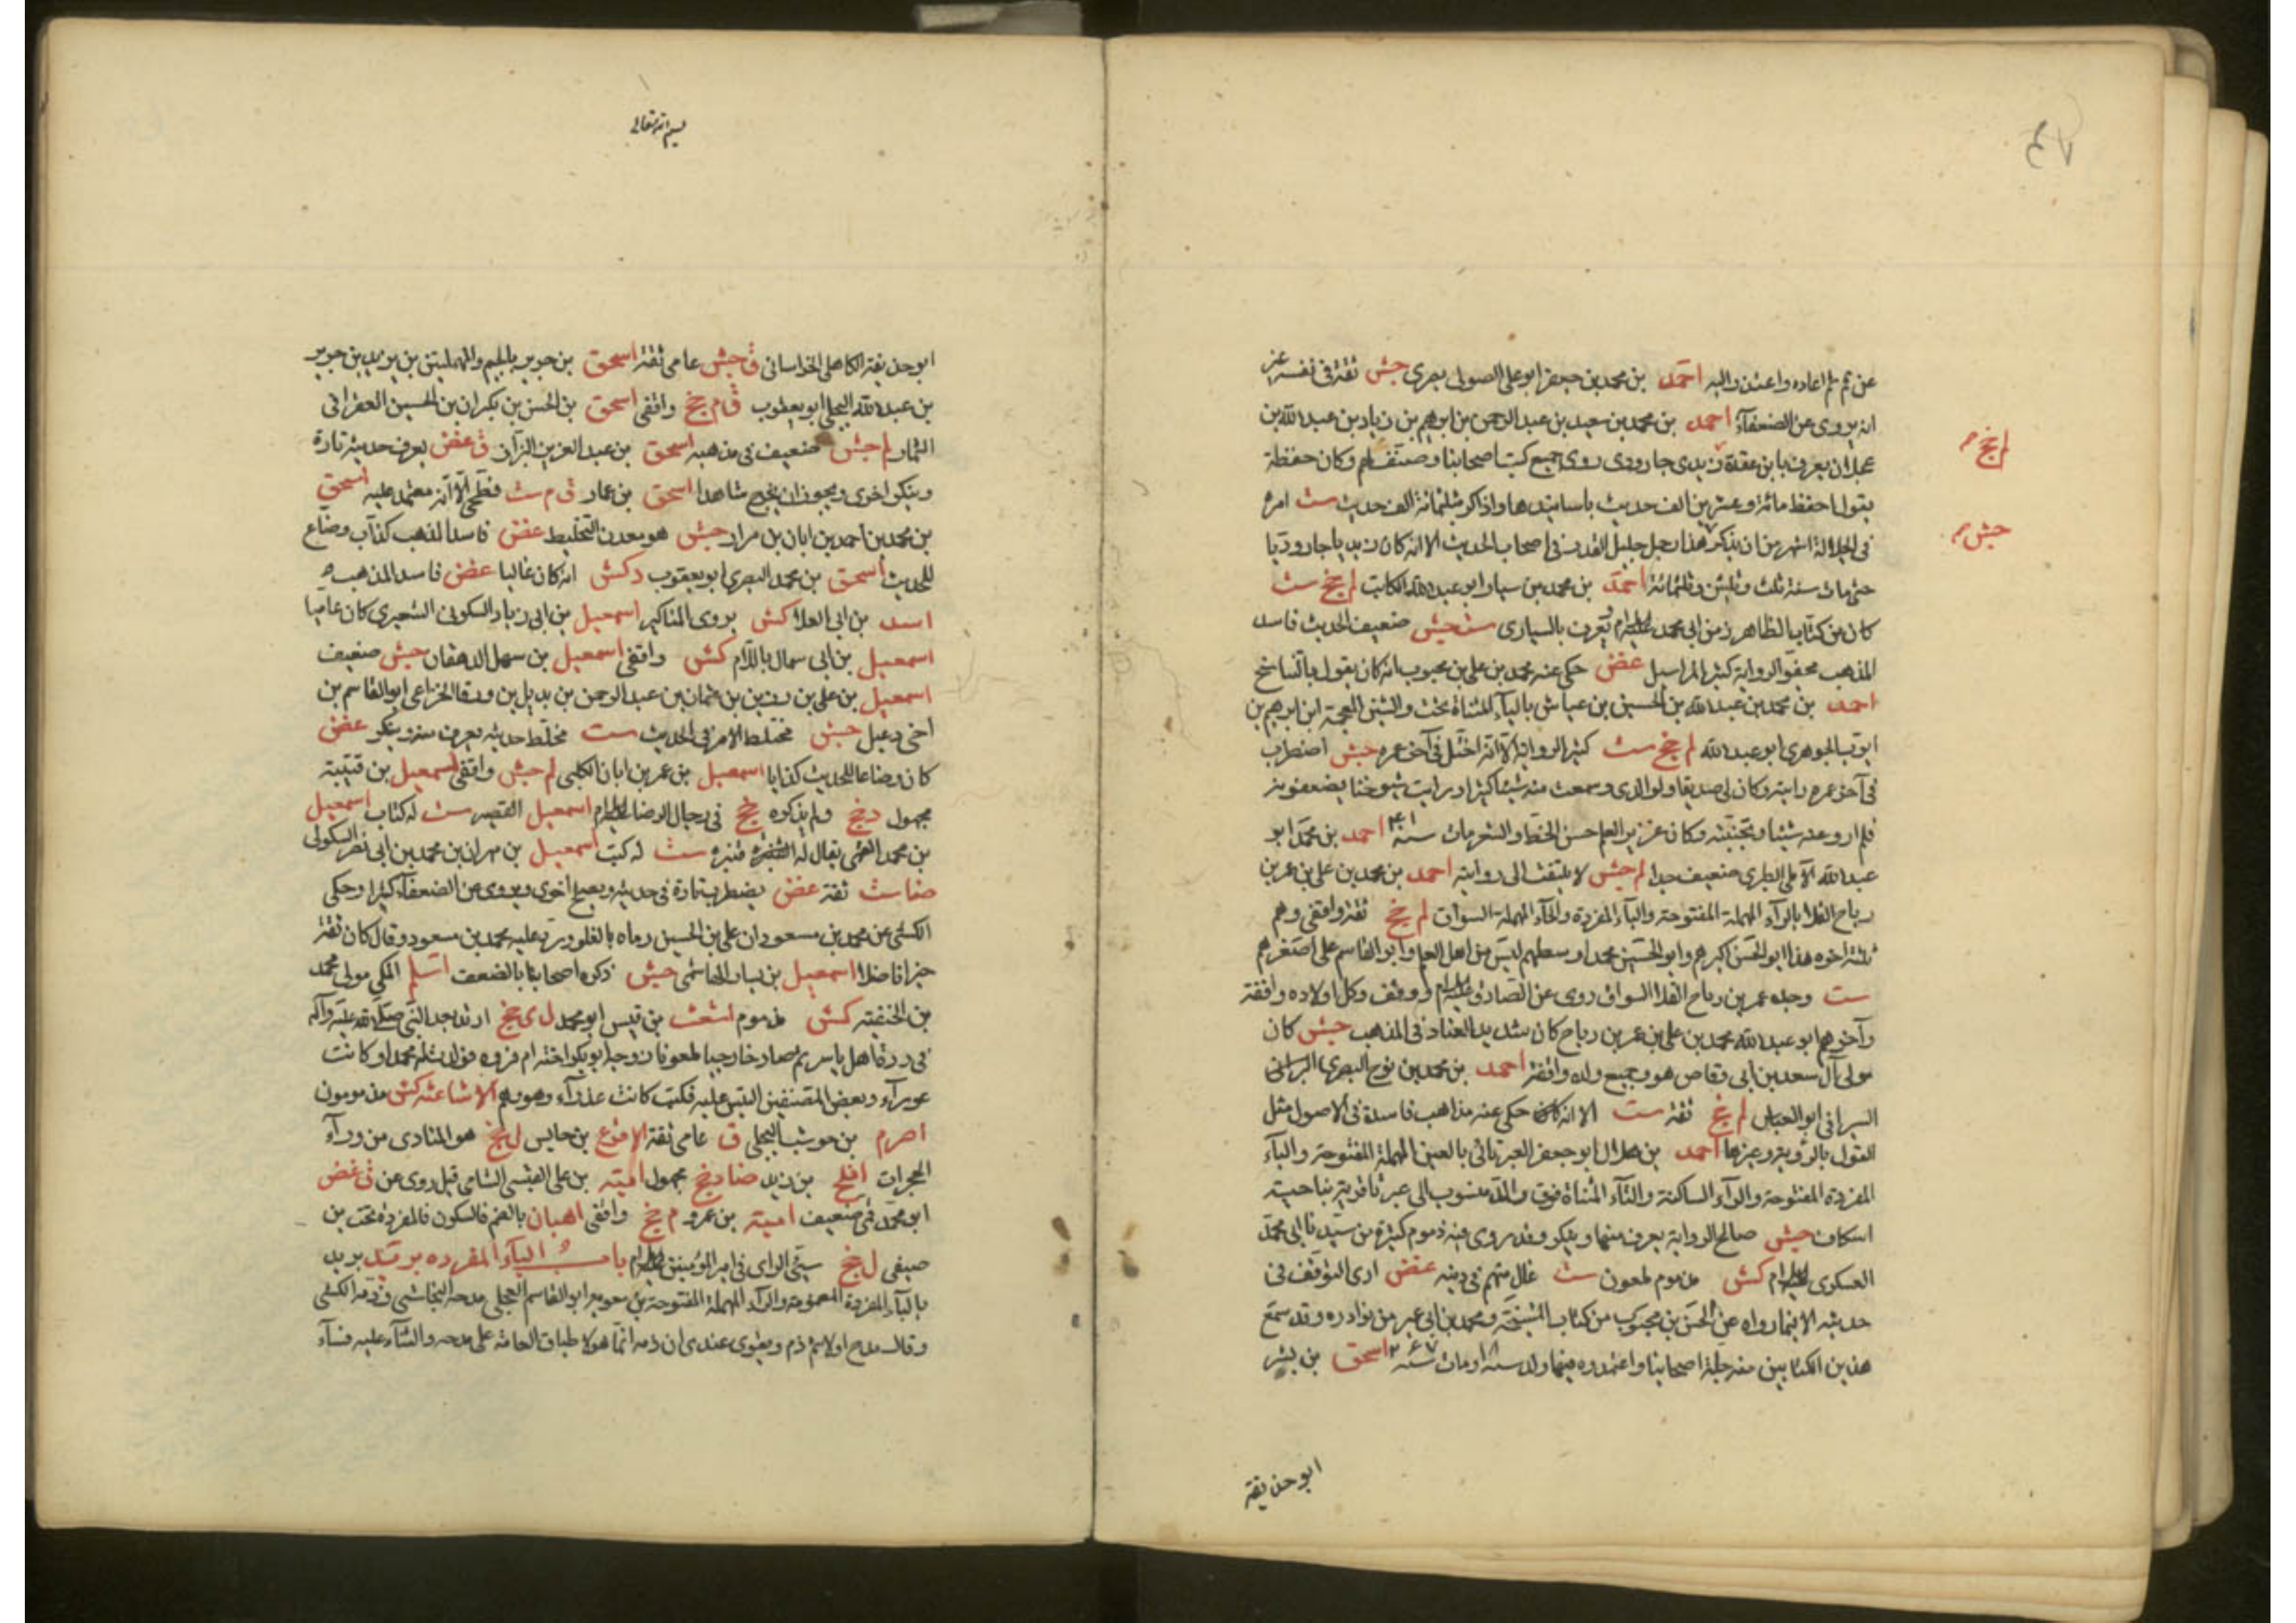 عن ثم لم اعاده واعتذر اليه احمد بن محمد بن جعفر ابو علي الصولي بصري جش ثقة في نفسه غير
انه يروي عن الضعفآء احمد بن محمد بن سعيد بن عبد الرحمن بن ابرهيم بن زياد بن عبد الله بن
عجلان يعرف بابن عقدة زيدي جارودي روى جميع كتب اصحابنا وصنف لهم وكان حفظة
لم جخ م
يقول احفظ مائة وعشرين الف حديث باسانيدها واذاكر بثلثمائة الف حديث ست امره
في الجلالة اشهر من ان يذكر هذا رجل جليل القدر في اصحاب الحديث الا انه كان زيديا جاروديا
جش م
حتى مات سنة ثلث وثلثين وثلثمائة احمد بن محمد بن سيار ابو عبد الله الكاتب لم جخ ست
كان من كتاب الطاهر زمن ابي محمد عليه السلام يعرف بالسياري ست جش ضعيف الحديث فاسد
المذهب مجفو الرواية كثير المراسيل غض حكى عنه محمد بن علي بن محبوب انه كان يقول بالتناسخ
احمد بن محمد بن عبد الله بن الحسين بن عياش باليآء المثناة تحت والشين المعجمة ابن ابرهيم بن
ايوب الجوهري ابو عبد الله لم جخ ست كثير الرواية الا انه اختل في آخر عمره جش اضطرب
في آخر عمره رايته وكان لي صديقا ولوالدي وسمعت منه شيئا كثيرا ورايت شيوخنا يضعفونه
فلم ارو عنه شيئا وتجنبته وكان غزير العلم حسن الخط والشعر مات سنة ۴۰۱ احمد بن محمد ابو
عبد الله الآملي الطبري ضعيف جدا لم جش لا يلتفت الى روايته احمد بن محمد بن علي بن عمر بن
رباح القلا بالرآء المهملة المفتوحة والبآء المفردة والحآء المهملة السواق لم جخ ثقة واقفي وهم
ثلثة اخوه هذا ابو الحسن اكبرهم وابو الحسين محمد اوسطهم ليس من اهل العلم وابو القاسم علي اصغرهم
ست وجده عمر بن رباح القلا السواق روى عن الصادق عليه السلام ووقف وكل اولاده واقفة
وآخرهم ابو عبد الله محمد بن علي بن عمر بن رباح كان شديد العناد في المذهب جش كان
مولى آل سعد بن ابي وقاص هو وجميع ولده واقفة احمد بن محمد بن نوح البصري
السيرافي ابو العباس لم جخ ثقة ست الا انه حكي عنه مذاهب فاسدة في الاصول مثل
القول بالرؤية وغيرها احمد بن هلال ابو جعفر العبرتائي بالعين المهملة المفتوحة والبآء
المفردة المفتوحة والرآء الساكنة والتآء المثناة فوق والمد منسوب الى عبرتا قرية بناحية
اسكاف جش صالح الرواية يعرف منها وينكر وقد روي فيه ذموم كثيرة من سيدنا ابي محمد
العسكري عليه السلام كش مذموم ملعون ست غال متهم في دينه غض ارى التوقف في
حديثه الا فيما رواه عن الحسن بن محبوب من كتاب المشيخة ومحمد بن ابي عمير من نوادره وقد سمع
هذين الكتابين منه جلة اصحابنا واعتمدوه فيهما ولد سنة ومات سنة اسحق بن بشر
ابو حذيفة
بسم الله تعالى
ابو حذيفة الكاهلي الخراساني ق جش عامي ثقة اسحق بن جرير بالجيم والمهملتين بن يزيد بن جرير
بن عبد الله البجلي ابو يعقوب ق م جخ واقفي اسحق بن الحسن بن بكران بن الحسين العقراني
التمار لم جش ضعيف في مذهبه اسحق بن عبد العزيز البزاز ق غض يعرف حديثه تارة
وينكر اخرى ويجوز ان يخرج شاهدا اسحق بن عمار ق م ست فطحي الا انه معتمد عليه اسحق
بن محمد بن احمد بن ابان بن مرار جش هو معدن التخليط غض فاسد المذهب كذاب وضاع
للحديث اسحق بن محمد البصري ابو يعقوب د كش انه كان غاليا غض فاسد المذهب
اسد بن ابي العلا كش يروي المناكير اسمعيل بن ابي زياد السكوني الشعيري كان عاميا
اسمعيل بن ابي سمال باللام كش واقفي اسمعيل بن سهل الدهقان جش ضعيف
اسمعيل بن علي بن رزين بن عثمان بن عبد الرحمن بن بديل بن ورقا الخزاعي ابو القاسم بن
اخي دعبل جش مختلط الامر في الحديث ست مخلط حديثه يعرف منه وينكر غض
كان وضاعا للحديث كذابا اسمعيل بن عمر بن ابان الكلبي لم جش واقفي اسمعيل بن قتيبة
مجهول د جخ ولم يذكره جخ في رجال الرضا عليه السلام اسمعيل القصير ست له كتاب اسمعيل
بن محمد القمي يقال له قنبره ست له كتب اسمعيل بن مهران بن محمد بن ابي نصر السكوني
ضا ست ثقة غض يضطرب تارة في حديثه ويصلح اخرى ويروي عن الضعفآء كثيرا وحكى
الكشي عن محمد بن مسعود ان علي بن الحسين رماه بالغلو ورد عليه محمد بن مسعود وقال كان ثقة
خيرا فاضلا اسمعيل بن يسار الهاشمي جش ذكره اصحابنا بالضعف اسلم المكي مولى محمد
بن الحنفية كش مذموم اشعث بن قيس ابو محمد ل ي جخ ارتد بعد النبي صلى الله عليه وآله
في ردة اهل ياسر ثم صار خارجيا ملعونا زوجه ابو بكر اخته ام فروه فولدت له محمدا وكانت
عورآء وبعض المصنفين التبس عليه فكتب كانت عذرآء وهو وهم الاشاعثه كش مذمومون
اصرم بن حوشب البجلي ق عامي ثقة الاقرع بن حابس ل جخ هو المنادي من ورآء
الحجرات افلح بن زيد ضا د جخ مجهول امية بن علي القيسي الشامي قيل روى عن ق غض
ابو محمد قمي ضعيف امية بن عمرو م جخ واقفي اهبان بالضم فالسكون فالمفردة تحت بن
صيفي ل جخ سيئ الراي في امير المؤمنين عليه السلام باب البآء المفرده بريد بريد
بالبآء المفردة المضمومة والرآء المهملة المفتوحة بن معوية ابو القاسم العجلي مدحه النجاشي وذمه الكشي
وقال مدح اولا ثم ذم ويقوى عندي ان ذمه انما هو لاطباق العامه على مدحه والثنآء عليه فسآء